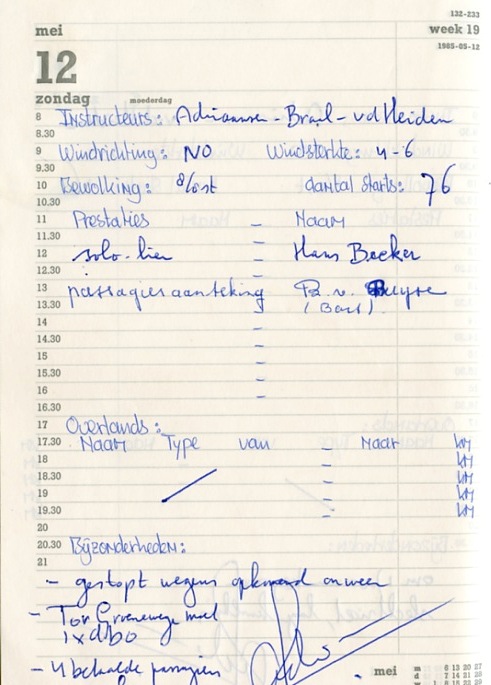 132-233
mei week 19
1985-05-12
12
zondag moederdag
8 Instructeurs: Adriaansen - Braal - vd Heiden
8.30
9 Windrichting: NO Windsterkte: 4-6
9.30
10 Bewolking: 8/8 st aantal starts: 76
10.30
11 Prestaties - Naam
11.30 -
12 solo-lier - Hans Becker
12.30 -
13 passagiersaantekening - R. v.
13.30 - (Bart).
14 -
14.30 -
15 -
15.30 -
16 -
16.30
17 Overlands:
17.30 Naam Type van - Naar KM
18 - KM
18.30 - KM
19 - KM
19.30 - KM
20
20.30 Bijzonderheden:
21
- gestopt wegens opkomend onweer
- Ton Groeneweg met
1x dbo
- 4 betaalde passagiers
mei m 6 13 20 27
d 7 14 21 28
w 1 8 15 22 29